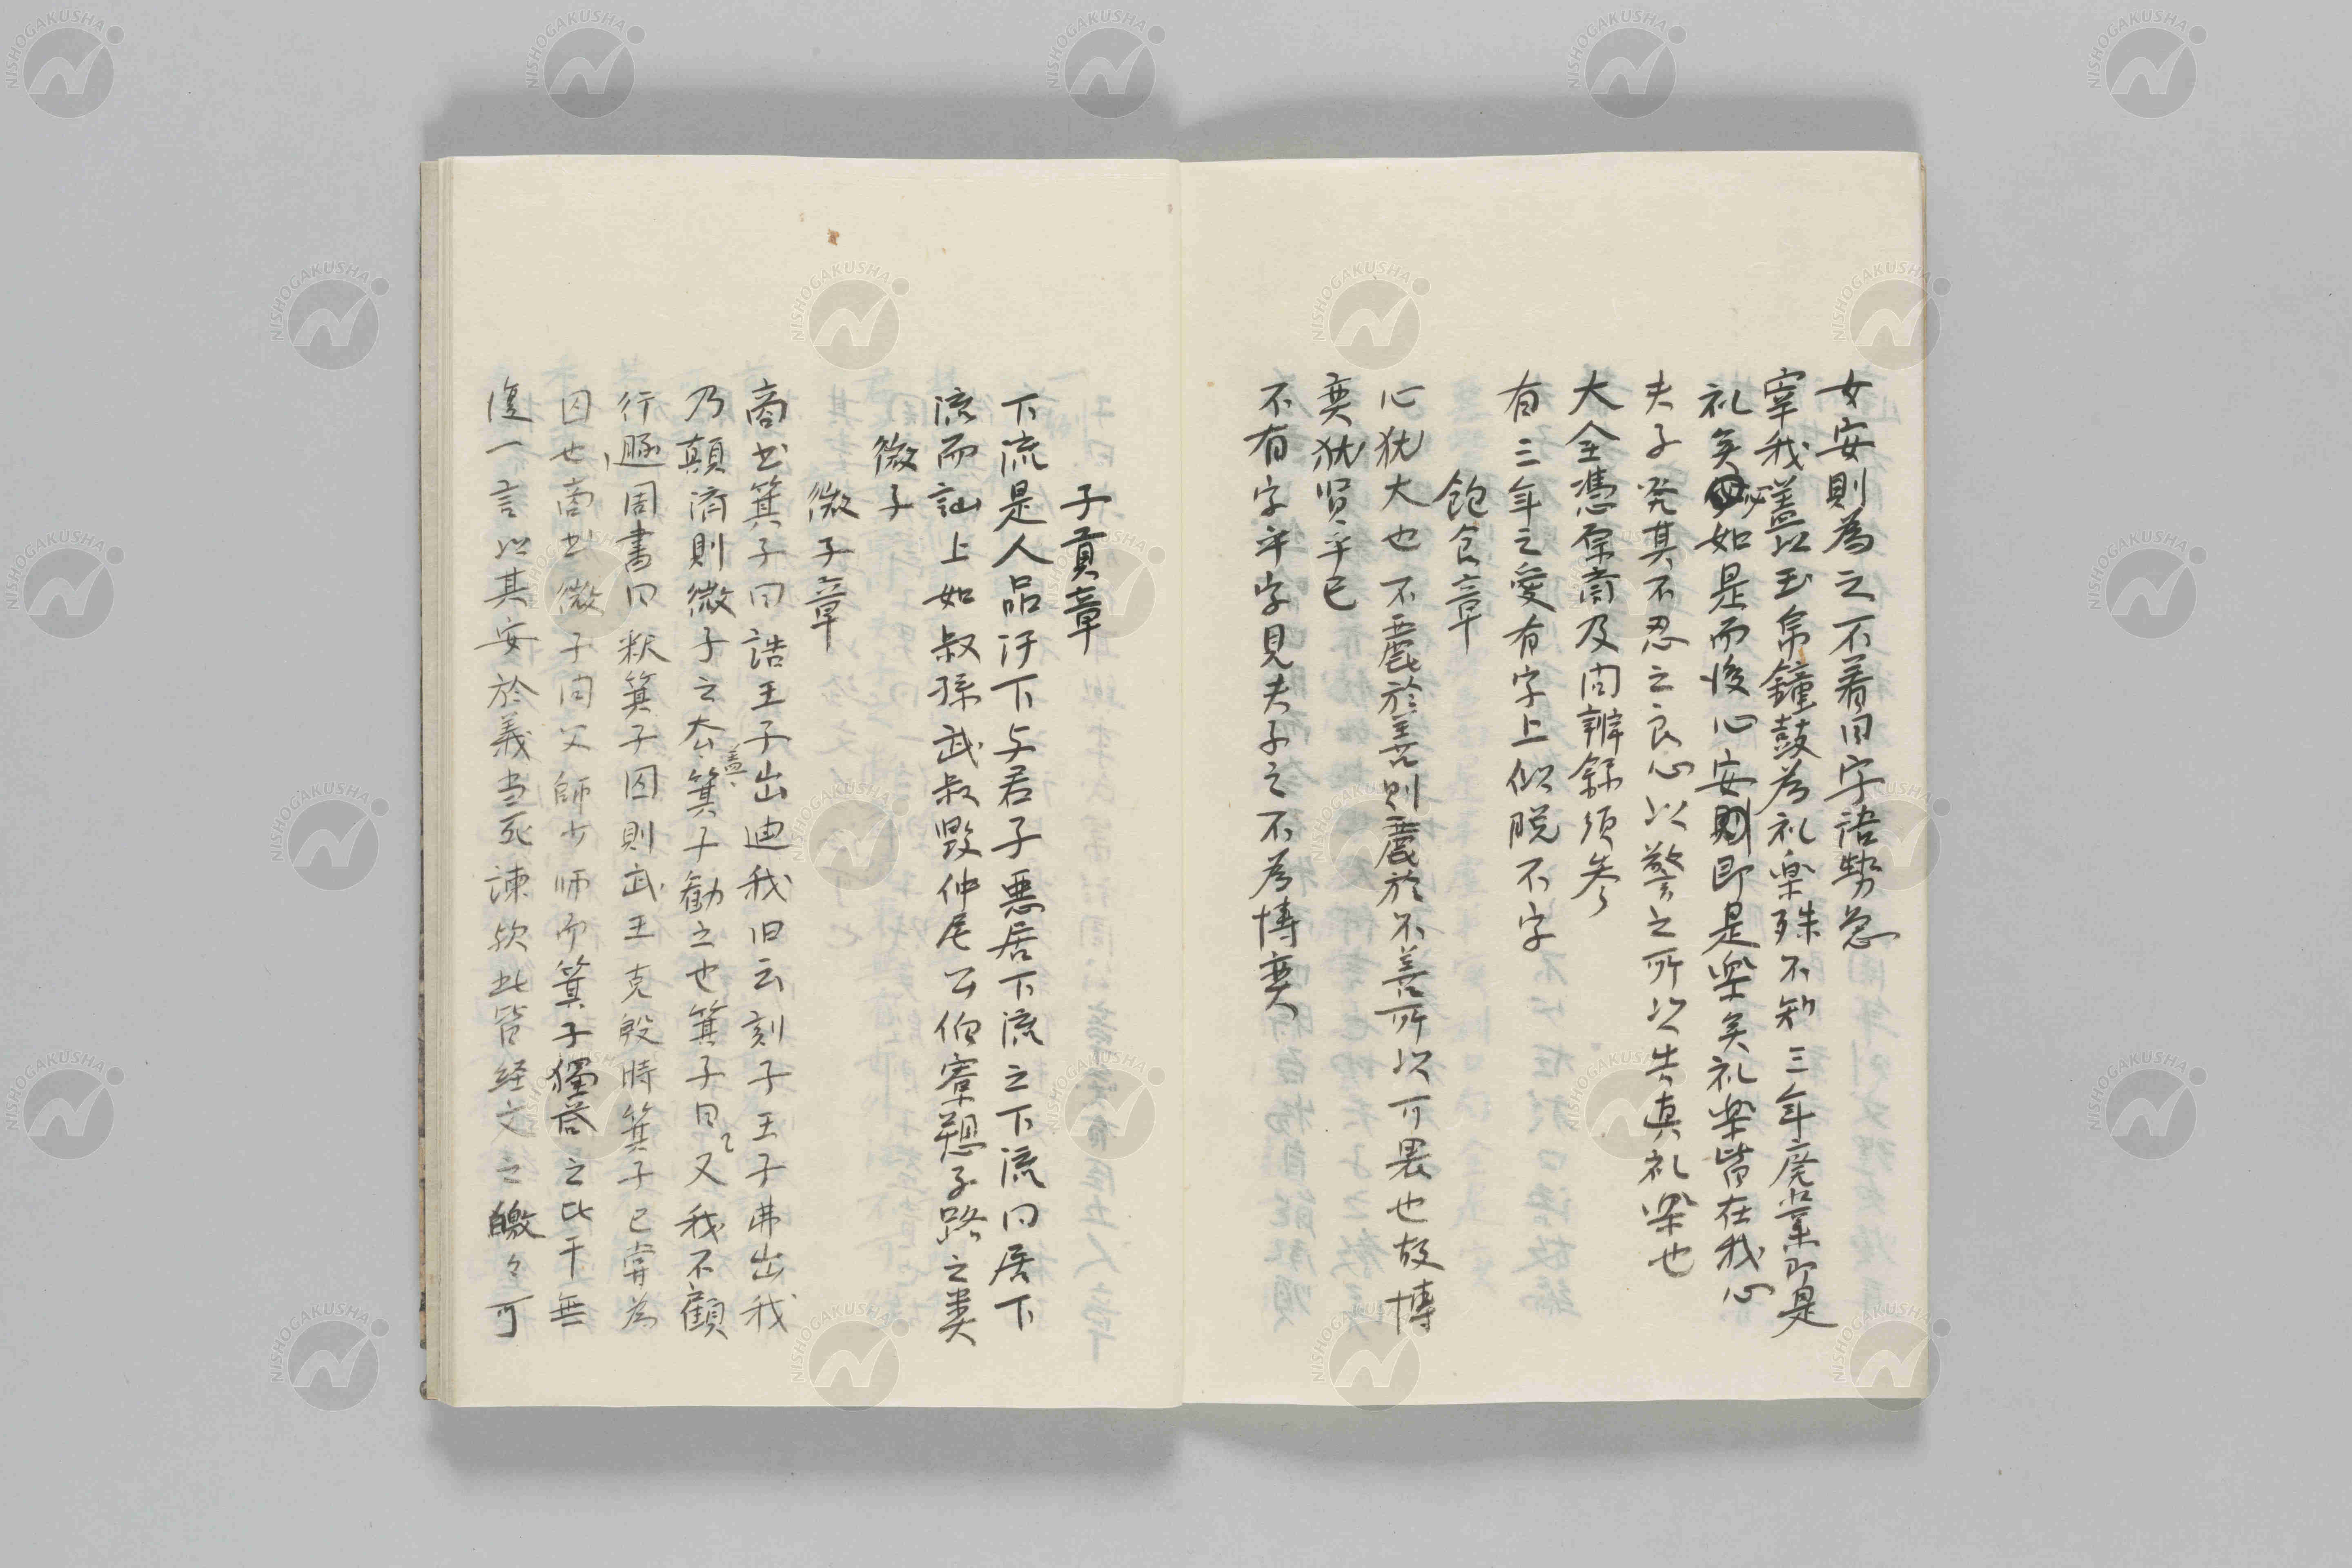 女安則為之不着曰字語勢急
宰我蓋以玉帛鐘鼓為礼楽殊不知三年廃業即是
礼矣必如是而後心安則即是楽矣礼楽皆在我心
夫子発其不忍之良心以警之所以告真礼楽也
大全憑厚斎及問辨録須参
有三年之愛有字上似脱不字
飽食章
心猶火也不麗於善則麗於不善所以可畏也故博
奕猶賢乎已
不有字乎字見夫子之不為博奕
子貢章
下流是人品汙下与君子悪居下流之下流同居下
流而訕上如叔孫武叔毀仲尼公伯寮愬子路之類
微子
微子章
商書箕子曰詔王子出迪我旧云刻子王子弗出我
乃顛隮則微子之去蓋箕子勧之也箕子曰又我不顧
行遯周書曰釈箕子囚則武王克殷時箕子已嘗為
囚也商書微子問父師少師而箕子獨答之比干無
復一言以其安於義当死諫欤此皆経文之皦々可
NISHOGAKUSHA